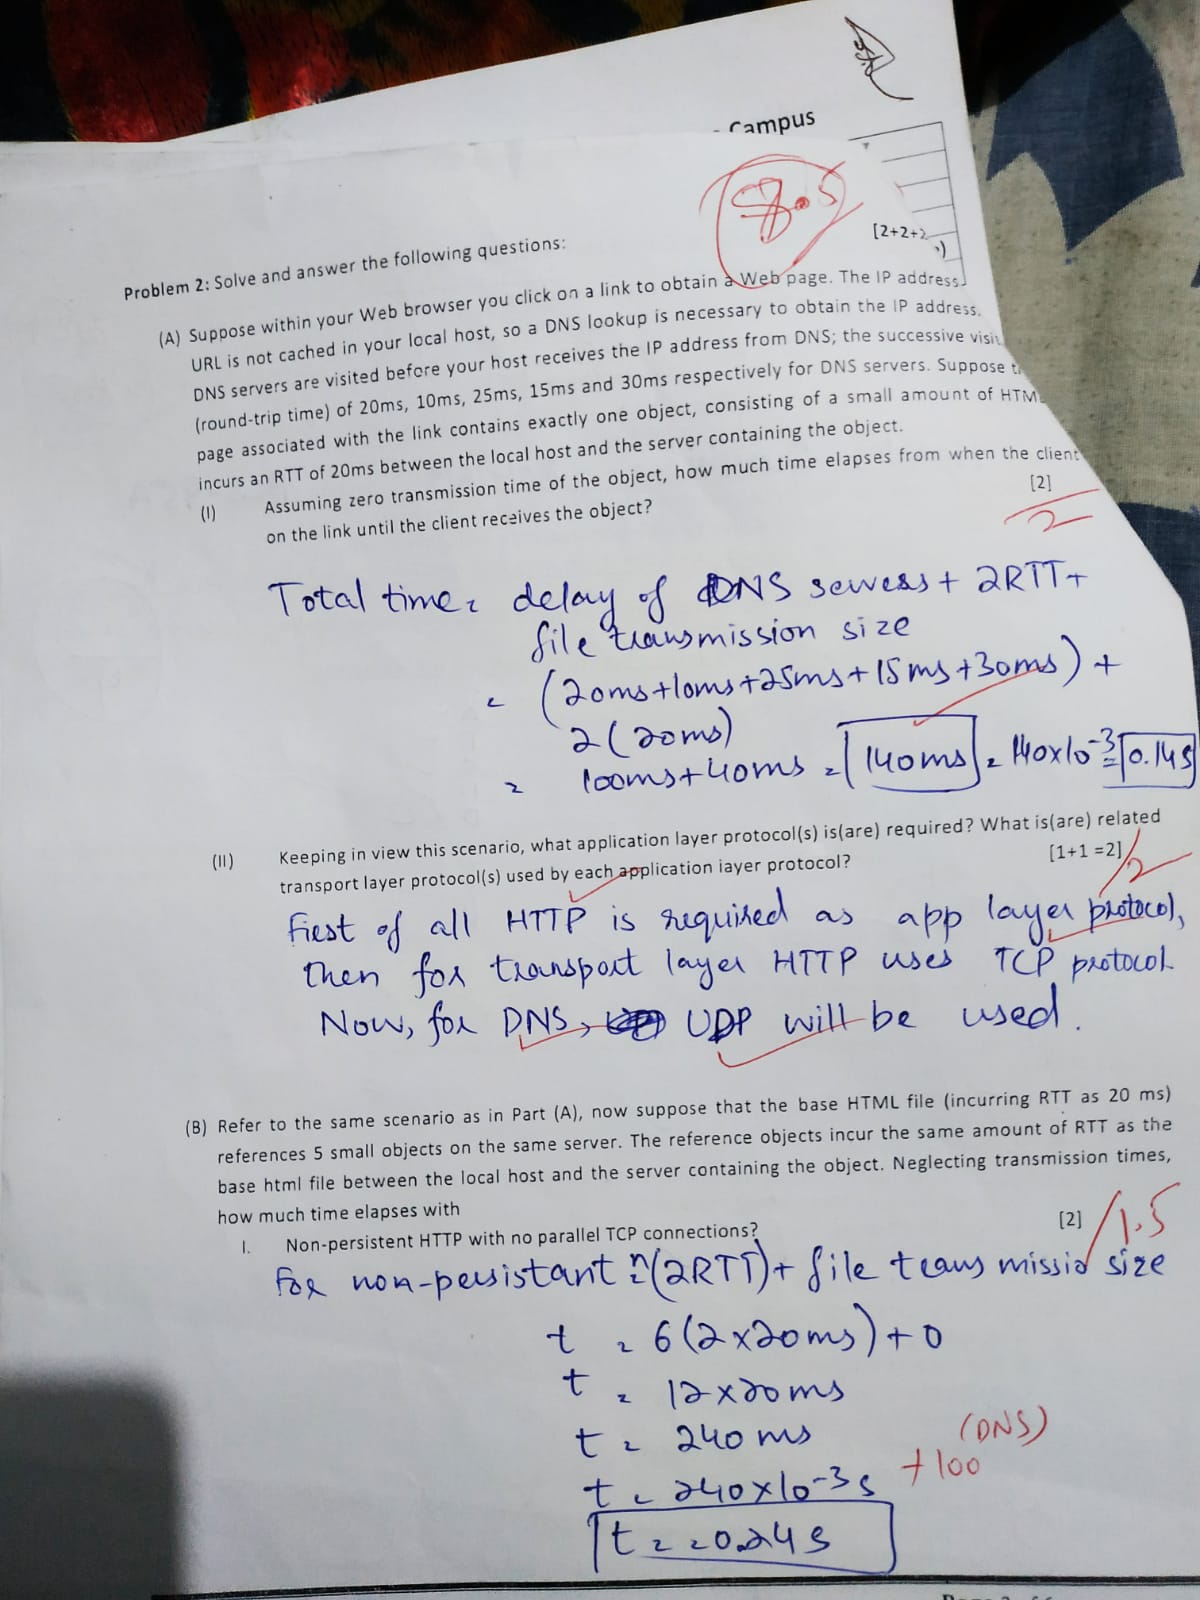 Campus
8.5
[2+2+2
Problem 2: Solve and answer the following questions:
(A) Suppose within your Web browser you click on a link to obtain a Web page. The IP address
URL is not cached in your local host, so a DNS lookup is necessary to obtain the IP address.
DNS servers are visited before your host receives the IP address from DNS; the successive
(round-trip time) of 20ms, 10ms, 25ms, 15ms and 30ms respectively for DNS servers. Suppose
page associated with the link contains exactly one object, consisting of a small amount of
incurs an RTT of 20ms between the local host and the server containing the object.
(I) Assuming zero transmission time of the object, how much time elapses from when the client
on the link until the client receives the object? [2]
2
Total time = delay of DNS servers + 2RTT +
file transmission size
= (20ms+10ms+25ms+15ms+30ms) +
2(20ms)
= 100ms+40ms = 140ms = 140x10-3 = 0.14s
(II) Keeping in view this scenario, what application layer protocol(s) is(are) required? What is(are) related
transport layer protocol(s) used by each application layer protocol? [1+1 =2] /2
First of all HTTP is required as app layer protocol,
then for transport layer HTTP uses TCP protocol.
Now, for DNS, UDP will be used.
(B) Refer to the same scenario as in Part (A), now suppose that the base HTML file (incurring RTT as 20 ms)
references 5 small objects on the same server. The reference objects incur the same amount of RTT as the
base html file between the local host and the server containing the object. Neglecting transmission times,
how much time elapses with
I. Non-persistent HTTP with no parallel TCP connections? [2] /1.5
For non-persistant = n(2RTT)+ file transmissio size
t = 6(2x20ms)+0
t = 12x20ms
t = 240 ms
(DNS)
t = 240x10-3s +100
t = 0.24s